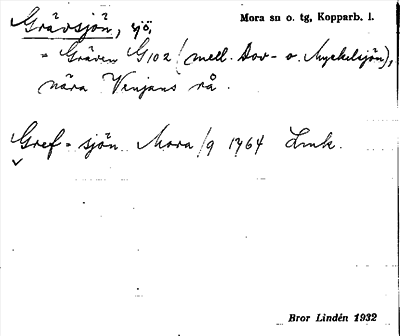 Grävsjön, sjö, Mora sn o. tg, Kopparb. l.
= Gräven G 102 (mell. Dov- o. Myckelsjön),
nära Venjans rå.
Gref-sjön Mora /9 1764 Lmk.
Bror Lindén 1932